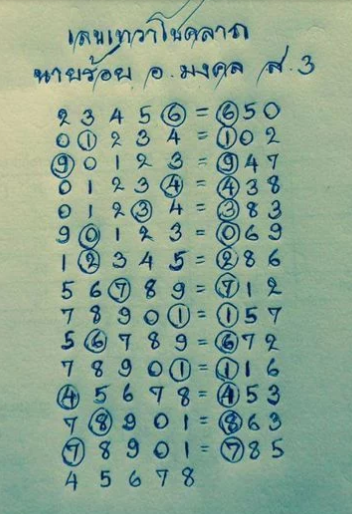 เลขเทวาโชคลาภ
นายร้อย อ.มงคล ส.3
2 3 4 5 6 = 650
0 1 2 3 4 = 102
9 0 1 2 3 = 947
0 1 2 3 4 = 438
0 1 2 3 4 = 383
9 0 1 2 3 = 069
1 2 3 4 5 = 286
5 6 7 8 9 = 712
7 8 9 0 1 = 157
5 6 7 8 9 = 672
7 8 9 0 1 = 116
4 5 6 7 8 = 453
7 8 9 0 1 = 863
7 8 9 0 1 = 785
4 5 6 7 8